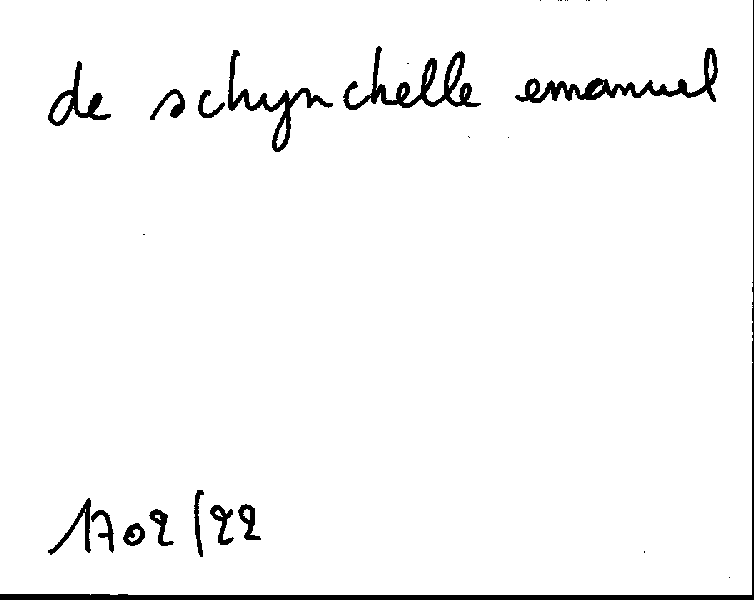 de schynchelle emanuel
1702/22